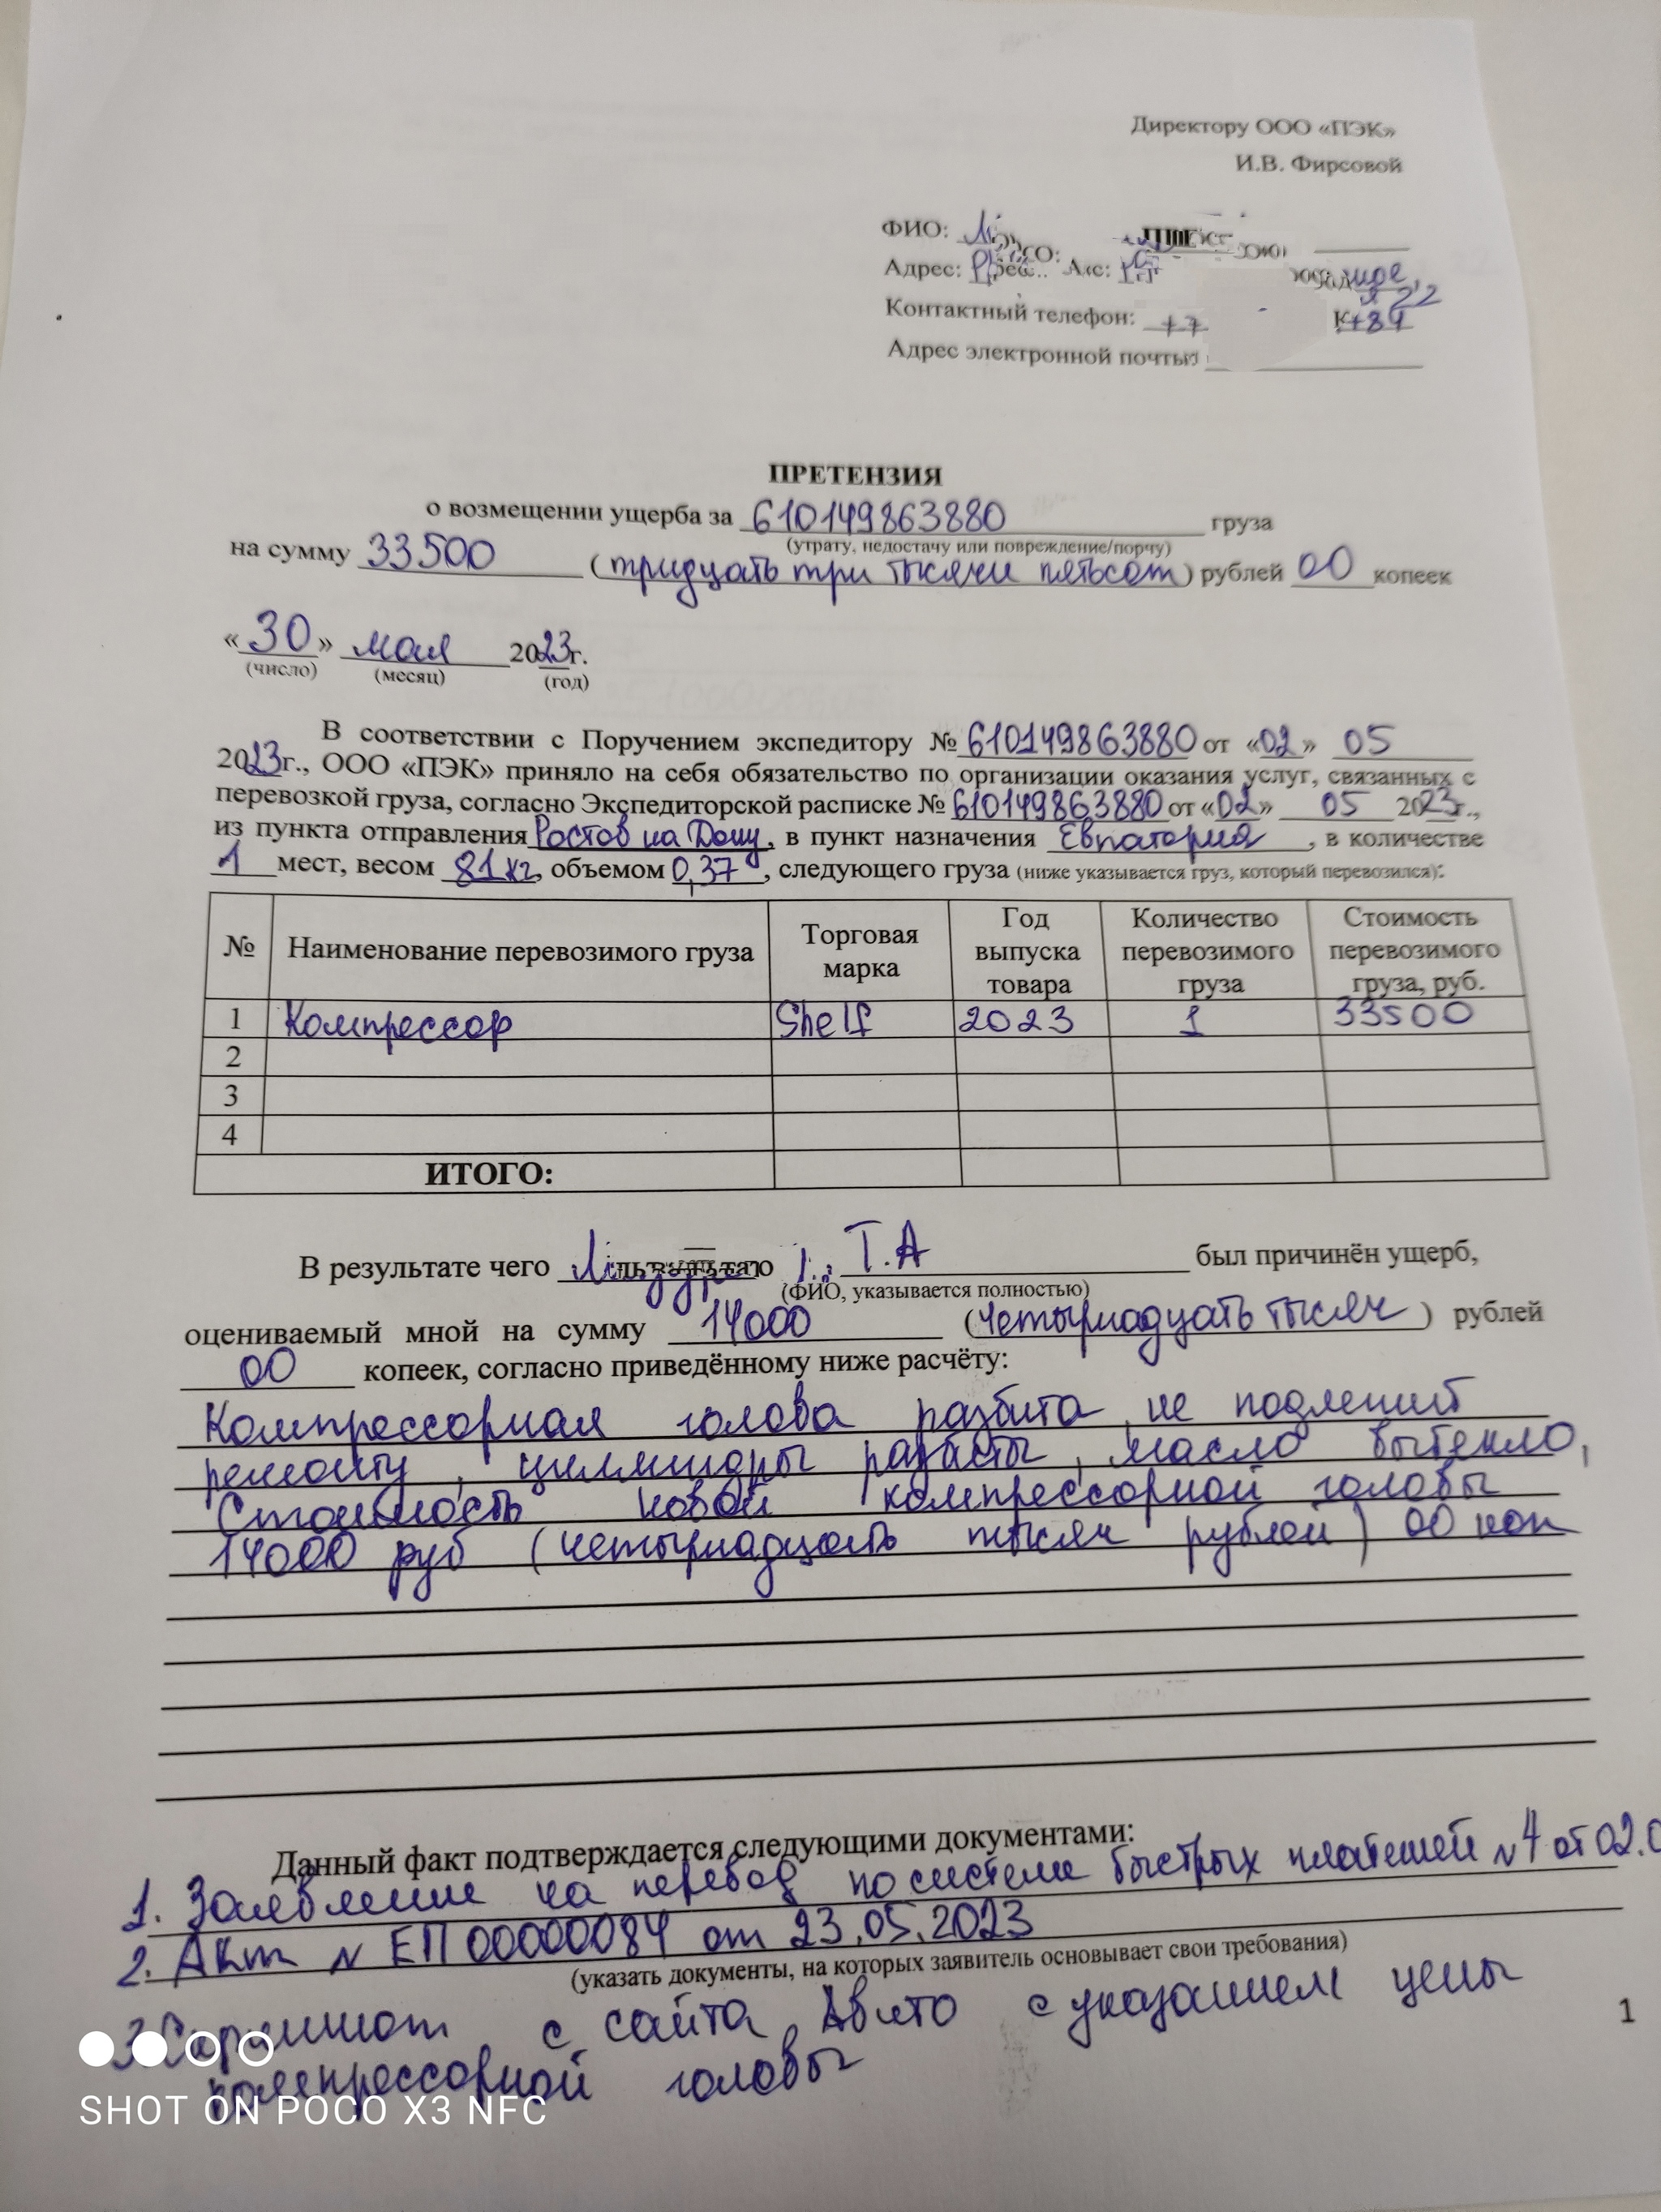 Директору ООО «ПЭК»
И.В. Фирсовой
ФИО:
Адрес:
Контактный телефон: +7 84
Адрес электронной почты:
ПРЕТЕНЗИЯ
о возмещении ущерба за 610149863880 груза
(утрату, недостачу или повреждение/порчу)
на сумму 33500 (тридцать три тысячи пятьсот) рублей 00 копеек
«30» мая 2023г.
(число) (месяц) (год)
В соответствии с Поручением экспедитору № 610149863880 от «02» 05
2023г., ООО «ПЭК» приняло на себя обязательство по организации оказания услуг, связанных с
перевозкой груза, согласно Экспедиторской расписке № 610149863880 от «02» 05 2023г.,
из пункта отправления Ростов на Дону, в пункт назначения Евпатория, в количестве
1 мест, весом 81 кг, объемом 0,37, следующего груза (ниже указывается груз, который перевозился):
№ Наименование перевозимого груза Торговая марка Год выпуска товара Количество перевозимого груза Стоимость перевозимого груза, руб.
1 Компрессор Shelf 2023 1 33500
2
3
4
ИТОГО:
В результате чего Т.А был причинён ущерб,
(ФИО, указывается полностью)
оцениваемый мной на сумму 14000 (четырнадцать тысяч) рублей
00 копеек, согласно приведённому ниже расчёту:
Компрессорная голова разбита, не подлежит
ремонту, цилиндры разбиты, масло вытекло,
Стоимость новой компрессорной головы
14000 руб (четырнадцать тысяч рублей) 00 коп
Данный факт подтверждается следующими документами:
1. Заявление на перевод по системе быстрых платежей №4 от 02.0
2. Акт № ЕП00000084 от 23.05.2023
(указать документы, на которых заявитель основывает свои требования)
3 Скриншот с сайта Авито с указанием цены
компрессорной головы
1
SHOT ON POCO X3 NFC